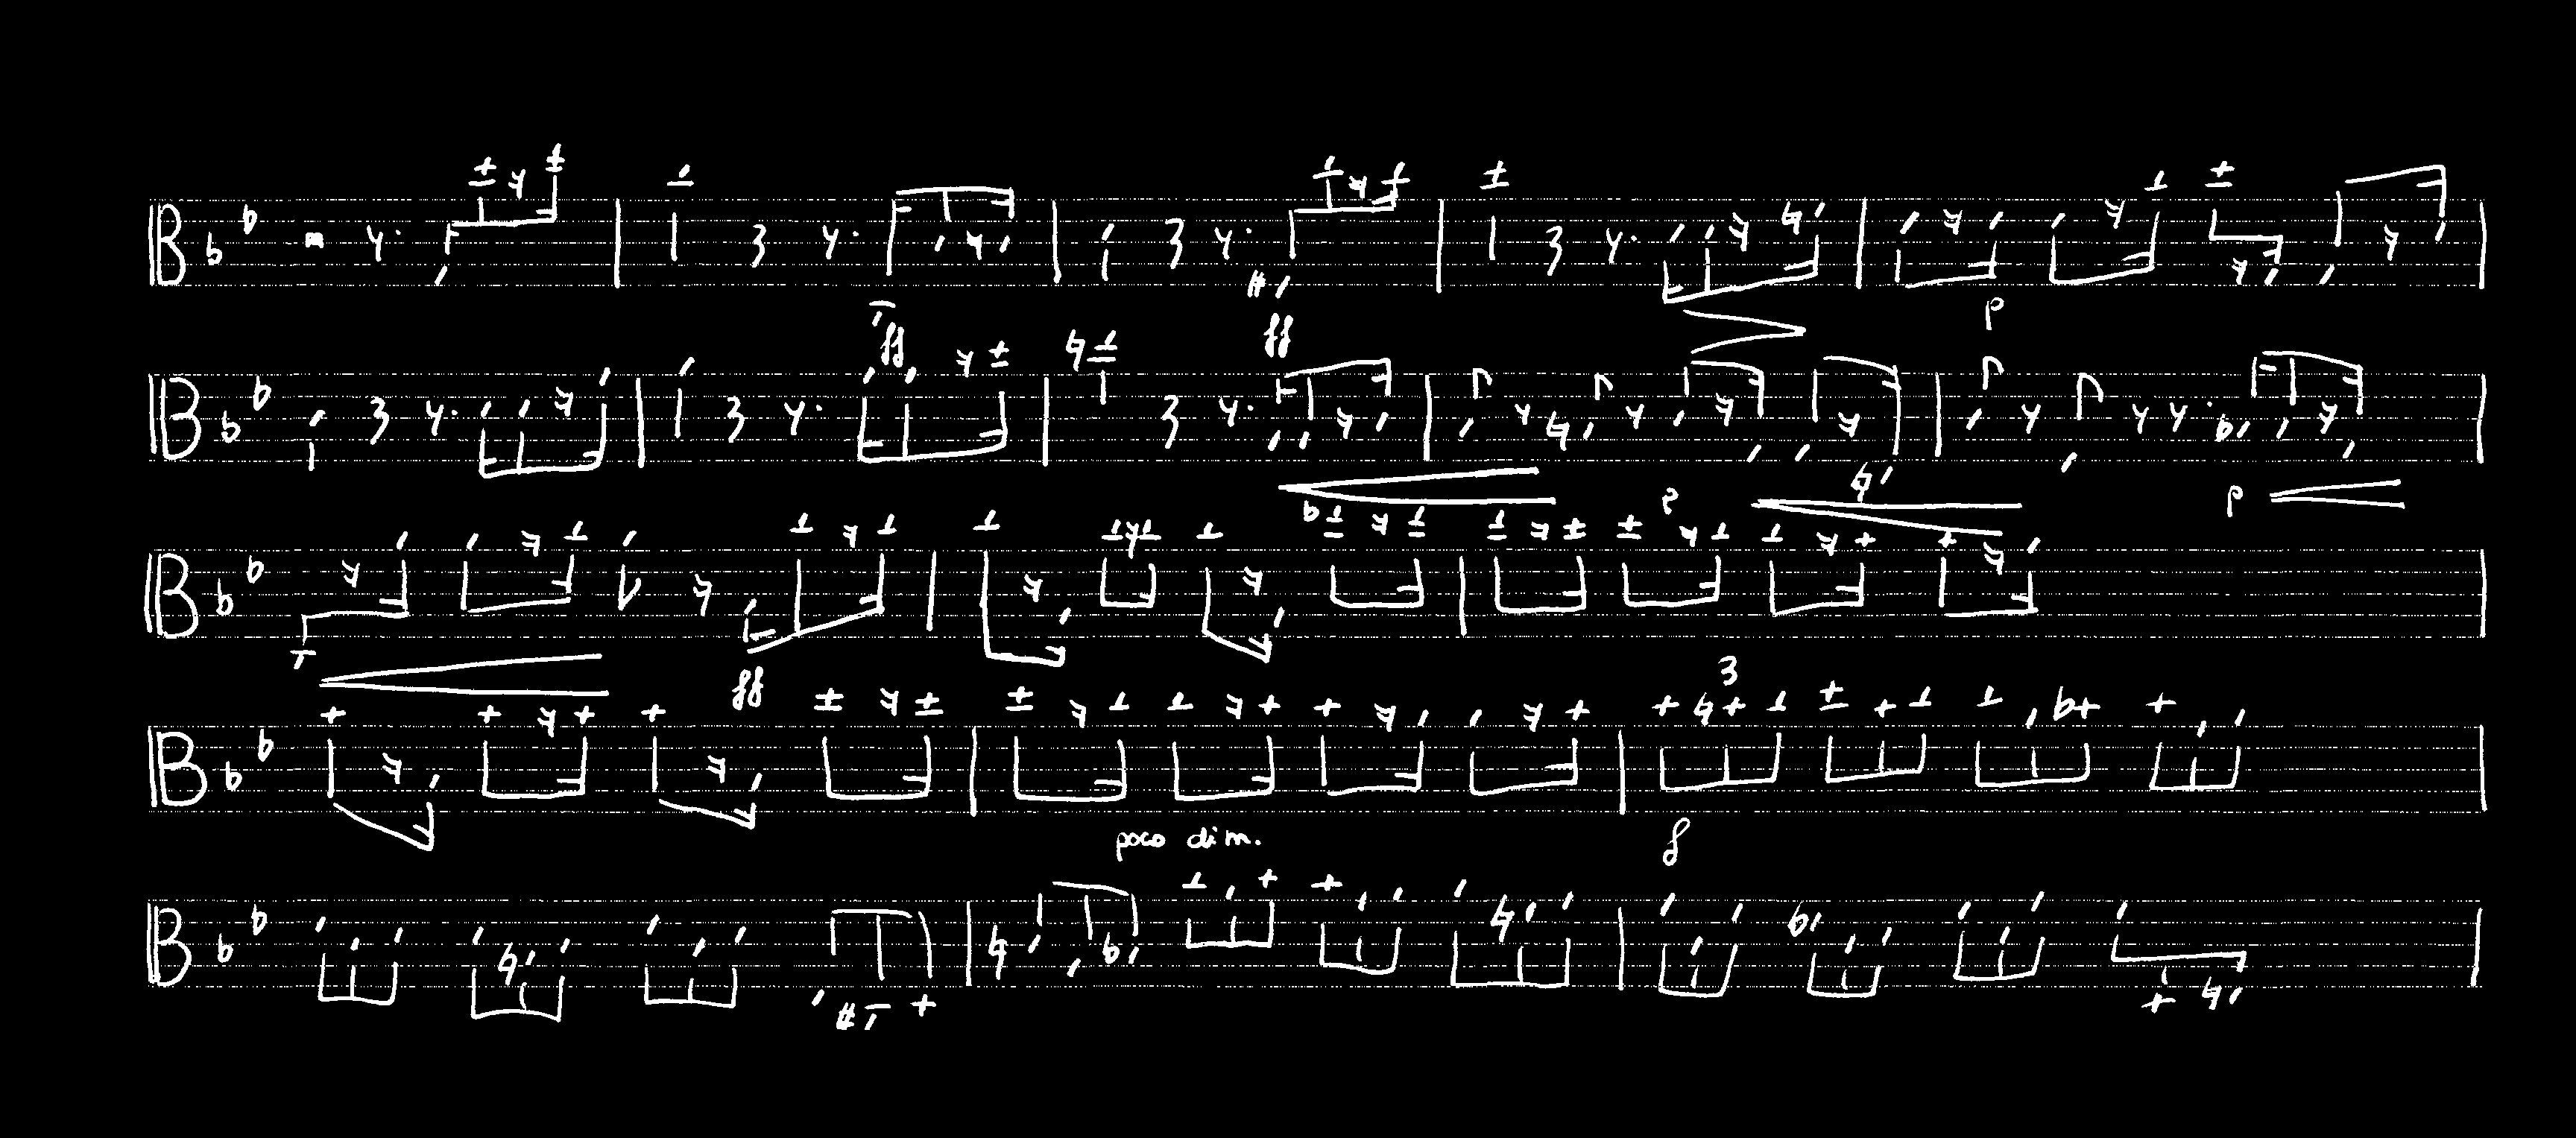 ff ff
p
p p
ff
3
poco dim. f